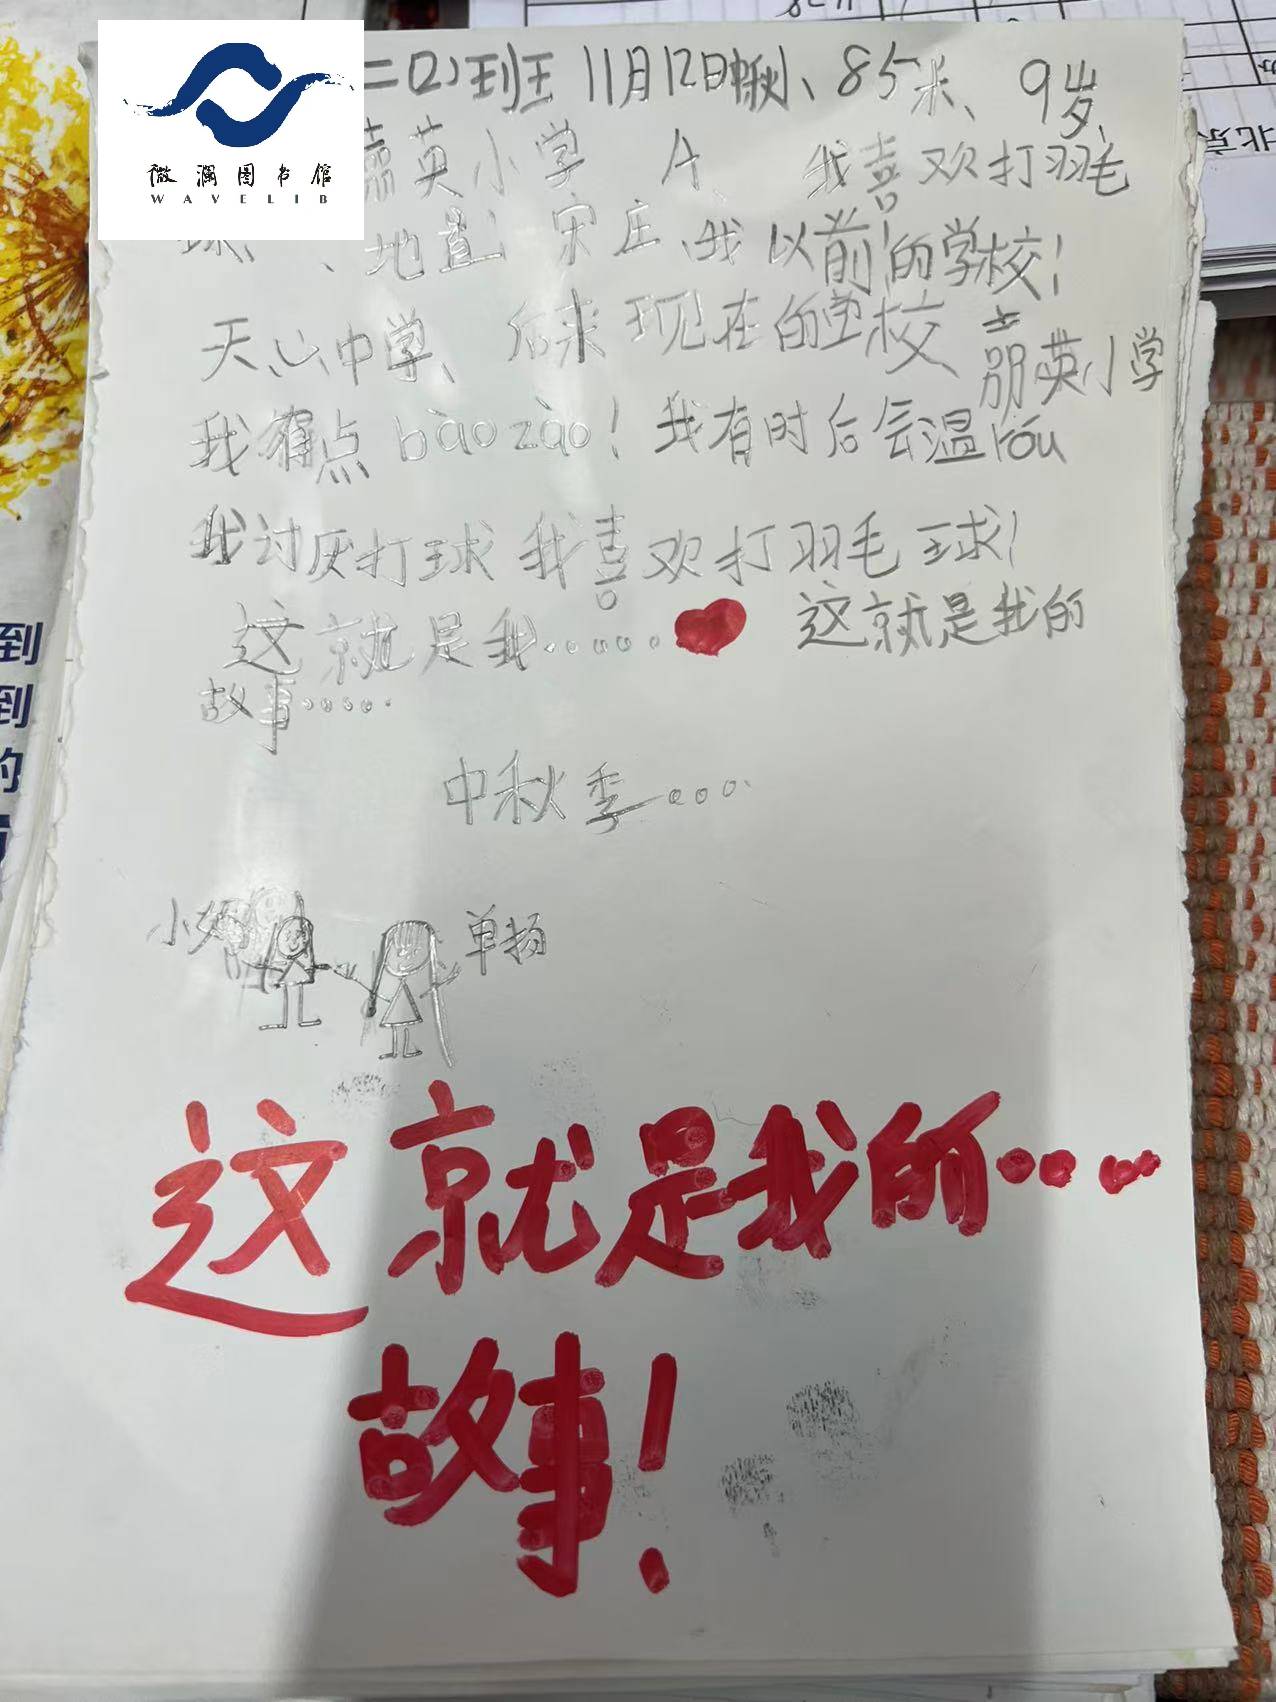 微澜图书馆
WAVELIB
二(2)班 11月12日中秋、85米、9岁、
英小学 A、 我喜欢打羽毛
球、、地置:宋庄、我以前的学校!
天山中学、后来现在的学校 英小学
我有点 bào zào! 我有时后会温róu
我讨厌打球 我喜欢打羽毛球!
这就是我…… 这就是我的
故事……
中秋季……
小 单扬
这就是我的……
故事!
到
到
的
北京